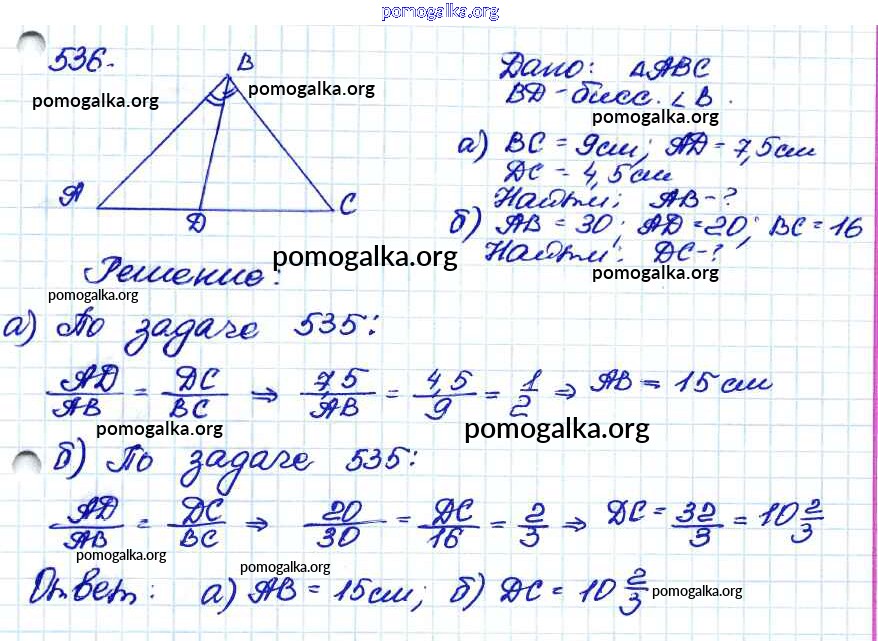 pomogalka.org
536.
B
Дано: △ABC
pomogalka.org
pomogalka.org
BD - бисс. ∠B.
pomogalka.org
а) BC = 9см; AD = 7,5см
DC = 4,5см
A
D
C
Найти; AB - ?
б) AB = 30; AD = 20; BC = 16
Найти: DC - ?
pomogalka.org
Решение:
pomogalka.org
pomogalka.org
а) По задаче 535:
AD/AB = DC/BC ⇒ 7,5/AB = 4,5/9 = 1/2 ⇒ AB = 15 см
pomogalka.org
pomogalka.org
б) По задаче 535:
AD/AB = DC/BC ⇒ 20/30 = DC/16 = 2/3 ⇒ DC = 32/3 = 10 2/3
pomogalka.org
pomogalka.org
Ответ: а) AB = 15см; б) DC = 10 2/3
pomogalka.org